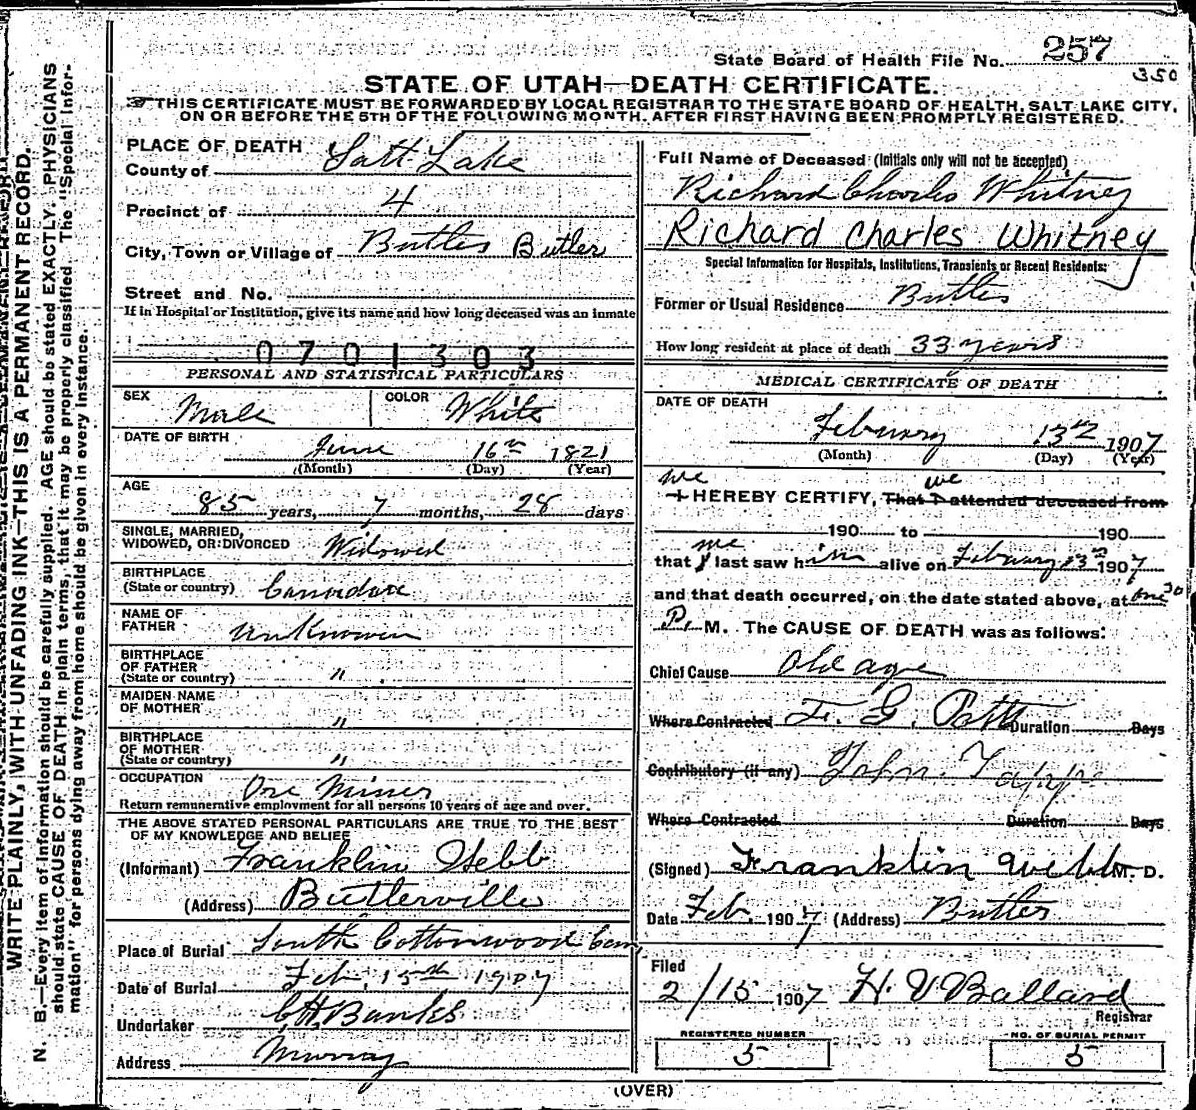 State Board of Health File No. 257
350
STATE OF UTAH—DEATH CERTIFICATE.
THIS CERTIFICATE MUST BE FORWARDED BY LOCAL REGISTRAR TO THE STATE BOARD OF HEALTH, SALT LAKE CITY,
ON OR BEFORE THE 5TH OF THE FOLLOWING MONTH. AFTER FIRST HAVING BEEN PROMPTLY REGISTERED.
WRITE PLAINLY, WITH UNFADING INK—THIS IS A PERMANENT RECORD.
N. B.—Every item of information should be carefully supplied. AGE should be stated EXACTLY. PHYSICIANS
should state CAUSE OF DEATH in plain terms, that it may be properly classified. The "Special Infor-
mation" for persons dying away from home should be given in every instance.
PLACE OF DEATH
County of Salt Lake
Precinct of 4
City, Town or Village of Butler Butler
Street and No.
If in Hospital or Institution, give its name and how long deceased was an inmate
0701303
PERSONAL AND STATISTICAL PARTICULARS
SEX Male COLOR White
DATE OF BIRTH June 16th 1821
(Month) (Day) (Year)
AGE
85 years, 7 months, 28 days
SINGLE, MARRIED,
WIDOWED, OR DIVORCED Widowed
BIRTHPLACE
(State or country)
NAME OF
FATHER unKnowen
BIRTHPLACE
OF FATHER
(State or country) "
MAIDEN NAME
OF MOTHER "
BIRTHPLACE
OF MOTHER
(State or country) "
OCCUPATION Ore Miner
Return remunerative employment for all persons 10 years of age and over.
THE ABOVE STATED PERSONAL PARTICULARS ARE TRUE TO THE BEST
OF MY KNOWLEDGE AND BELIEF
(Informant) Franklin Webb
(Address) Butlerville
Place of Burial South Cottonwood Cem
Date of Burial Feb, 15th 1907
Undertaker Banks
Address Murray
Full Name of Deceased (Initials only will not be accepted)
Richard Charles Whitney
Richard Charles Whitney
Special Information for Hospitals, Institutions, Transients or Recent Residents:
Former or Usual Residence Butler
How long resident at place of death 33 years
MEDICAL CERTIFICATE OF DEATH
DATE OF DEATH
February 13 1907
(Month) (Day) (Year)
we we
I HEREBY CERTIFY, That I attended deceased from
190 to 190
we
that I last saw him alive on February 13 1907
and that death occurred, on the date stated above, at one 30
P. M. The CAUSE OF DEATH was as follows:
Chief Cause Old age
Where Contracted F. G. Duration Days
Contributory (if any) John
Where Contracted Duration Days
(Signed) Franklin Webb M. D.
Date Feb 1907 (Address) Butler
Filed
2/15 1907 H. V Ballard
Registrar
REGISTERED NUMBER
5
NO. OF BURIAL PERMIT
5
(OVER)